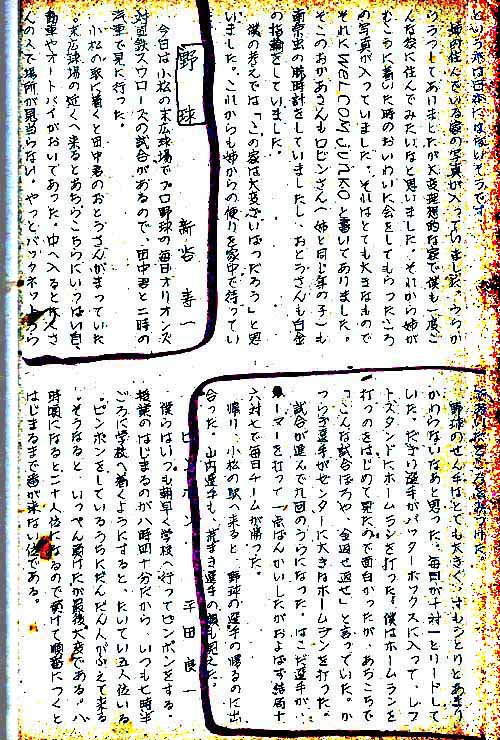 姉の住んでいる家の写真が入っていました。うらから
うつしてありましたが大変理想的な家で僕も一度こ
んな家に住んでみたいなと思いました。それから姉が
むこうに着いた時のおいわいに会をしてもらったころ
の写真が入っていました。それはとても大きなもので
それにWELCOMJUNKOと書いてありました。
そこのおかあさんもロビンさん(姉と同じ年の子)も
南京虫の腕時計をしていましたし、おとうさんも白金
の指輪をしていました。
僕の考えでは「この家は大変ごいはつだろう」と思
いました。これからも姉からの便りを家中で待ってい
野球
新谷 寿一
今日は小松の末広球場でプロ野球の毎日オリオンズ
対国鉄スワローズの試合があるので、田中君と二時の
汽車で見に行った。
小松の駅に着くと田中君のおとうさんがまっていた
。末広球場の近くへ来るとあちらこちらにいっぱい自
動車やオートバイがおいてあった。中へ入ると
んの人で場所が見当らない。やっとバックネットのうら
野球のせん手はとても大きく、すもうとりとあまり
かわらないなあと思った。毎日が十対一とリードして
いた。選手がバッターボックスに入って、レフ
トスタンドにホームランを打った。僕はホームランを
打ったのをはじめて見たので面白かったが、あちこちで
「こんな試合ほろや、金返せ返せ」と言っていた。か
つら選手がセンターに大きなホームランを打った。
試合が進んで九回のうらになった。はこだ選手が、
ーマーを打って一点ばんかいしたがおよばず結局十
六対七で毎日チームが勝った。
帰り、小松の駅へ来ると、野球の選手の帰るのに出
合った。山内選手も、荒まき選手の顔も見えた。
ピンポン
平田 良一
僕らはいつも朝早く学校へ行ってピンポンをする。
授業のはじまるのが八時四十分だから、いつも七時半
ごろに学校へ着くようにすると、たいてい五人位いる
。ピンポンをしているうちにだんだん人がふえて来る
。そうなると、いっぺん負けたが最後大変である。八
時間になると二十人位になるので負けて順番につくと
はじまるまで番が来ない位である。